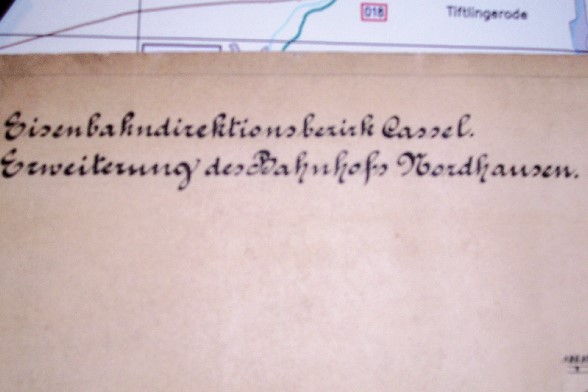 018 Tiftlingerode
Eisenbahndirektionsbezirk Cassel.
Erweiterung des Bahnhofs Nordhausen.